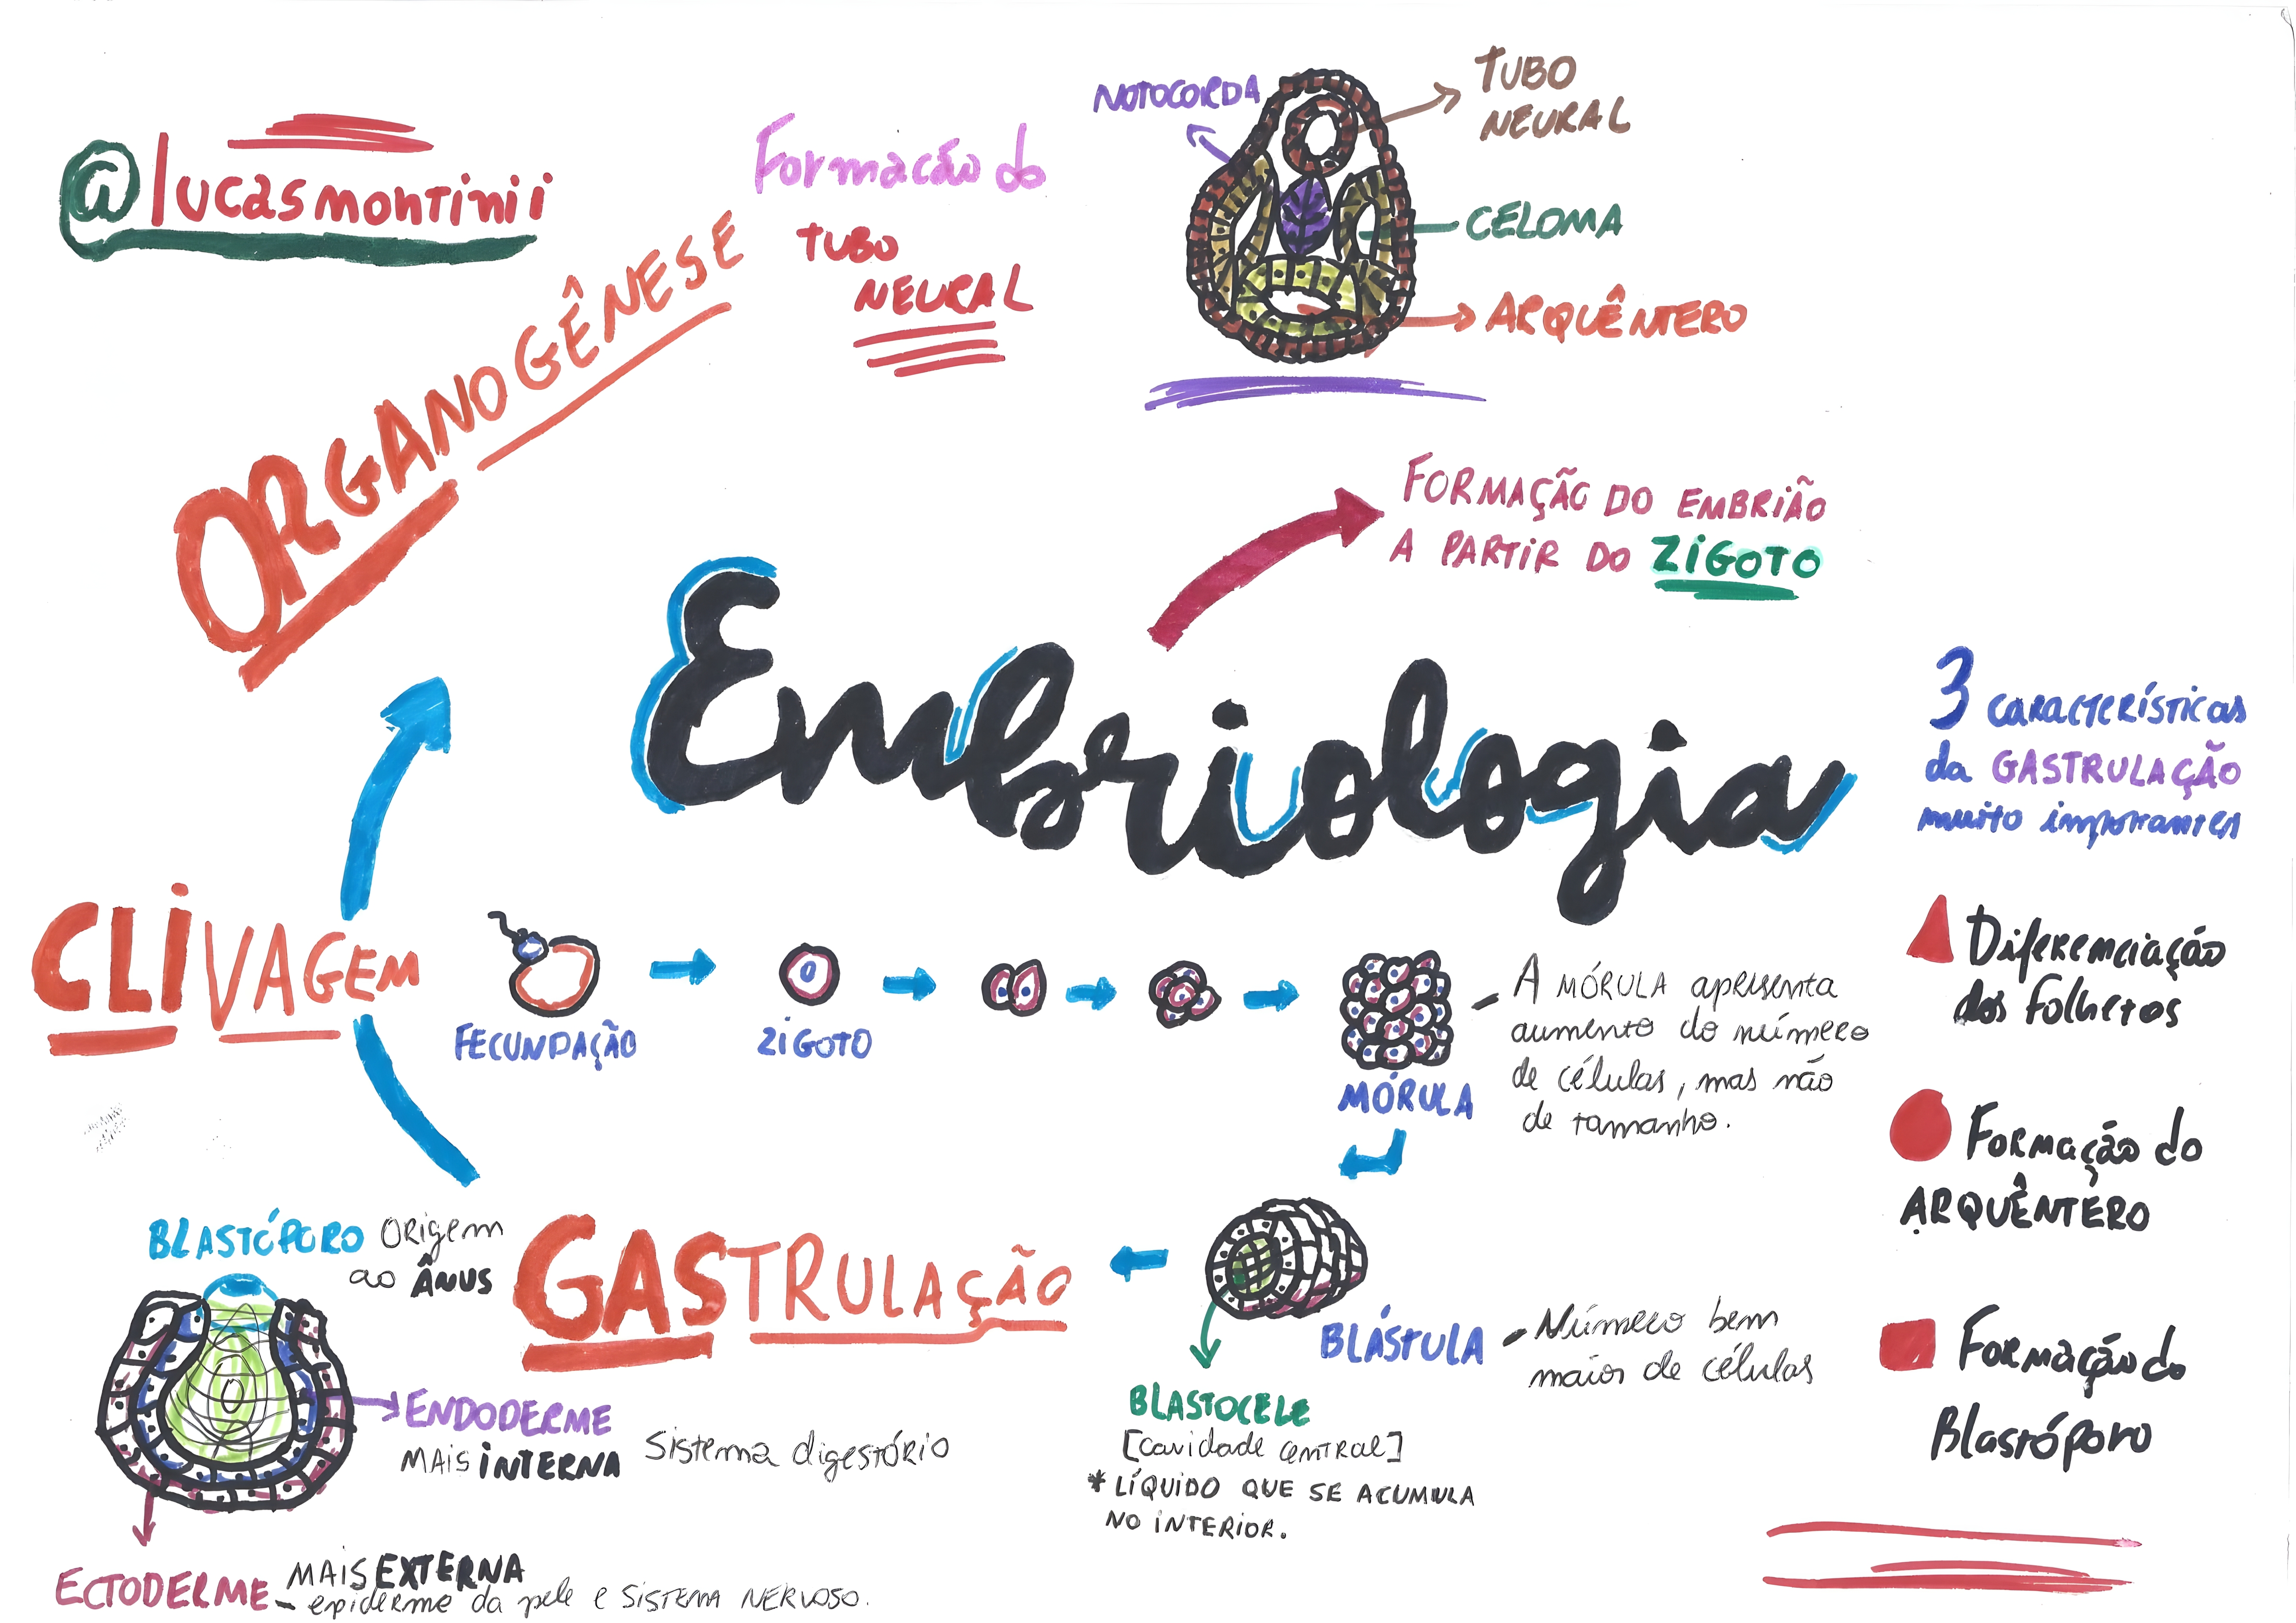 @lucasmontinii
ORGANOGÊNESE
Formação do
TUBO
NEURAL
NOTOCORDA
TUBO
NEURAL
CELOMA
ARQUÊNTERO
FORMAÇÃO DO EMBRIÃO
A PARTIR DO ZIGOTO
Embriologia
3 características
da GASTRULAÇÃO
muito importantes
Diferenciação
dos Folhetos
Formação do
ARQUÊNTERO
Formação do
Blastóporo
CLIVAGEM
FECUNDAÇÃO
ZIGOTO
MÓRULA
A MÓRULA apresenta
aumento do número
de células, mas não
de tamanho.
BLÁSTULA
Número bem
maior de células
BLASTOCELE
[cavidade central]
* LÍQUIDO QUE SE ACUMULA
NO INTERIOR.
GASTRULAÇÃO
BLASTÓPORO origem
ao ÂNUS
ENDODERME
MAIS INTERNA Sistema digestório
ECTODERME
MAIS EXTERNA
- epiderme da pele e SISTEMA NERVOSO.